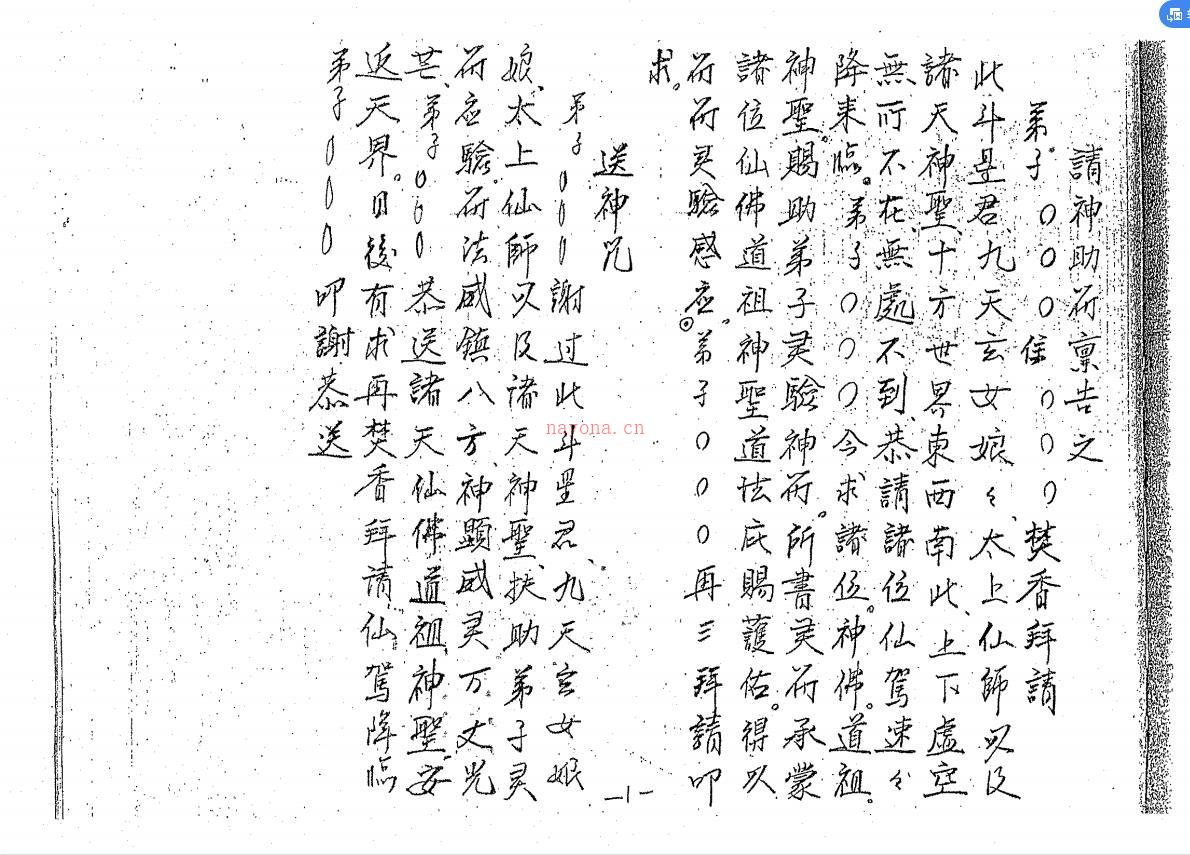 請神助符稟告之
弟子。〇〇〇住〇〇〇焚香拜請
北斗星君、九天玄女娘々、太上仙師以及
諸天神聖、十方世界東西南北、上下虛空
無所不在、無處不到、恭請諸位仙駕速々
降來臨。弟子〇〇〇今求諸位。神佛。道祖。
神聖。賜助弟子灵驗神符。所書灵符承蒙
諸位仙佛道祖神聖道法庇賜護佑。得以
符符灵驗感应。弟子〇〇〇再三拜請叩
求。
送神咒
弟子〇〇〇謝过北斗星君、九天玄女娘
娘、太上仙師以及諸天神聖、扶助弟子灵
符应驗。符法威鎮八方、神顯威灵万丈光
芒、弟子〇〇〇恭送諸天仙佛道祖、神聖、安
返天界。日後有求再焚香拜請仙駕降臨
弟子〇〇〇叩謝恭送
-1-
nayona.cn